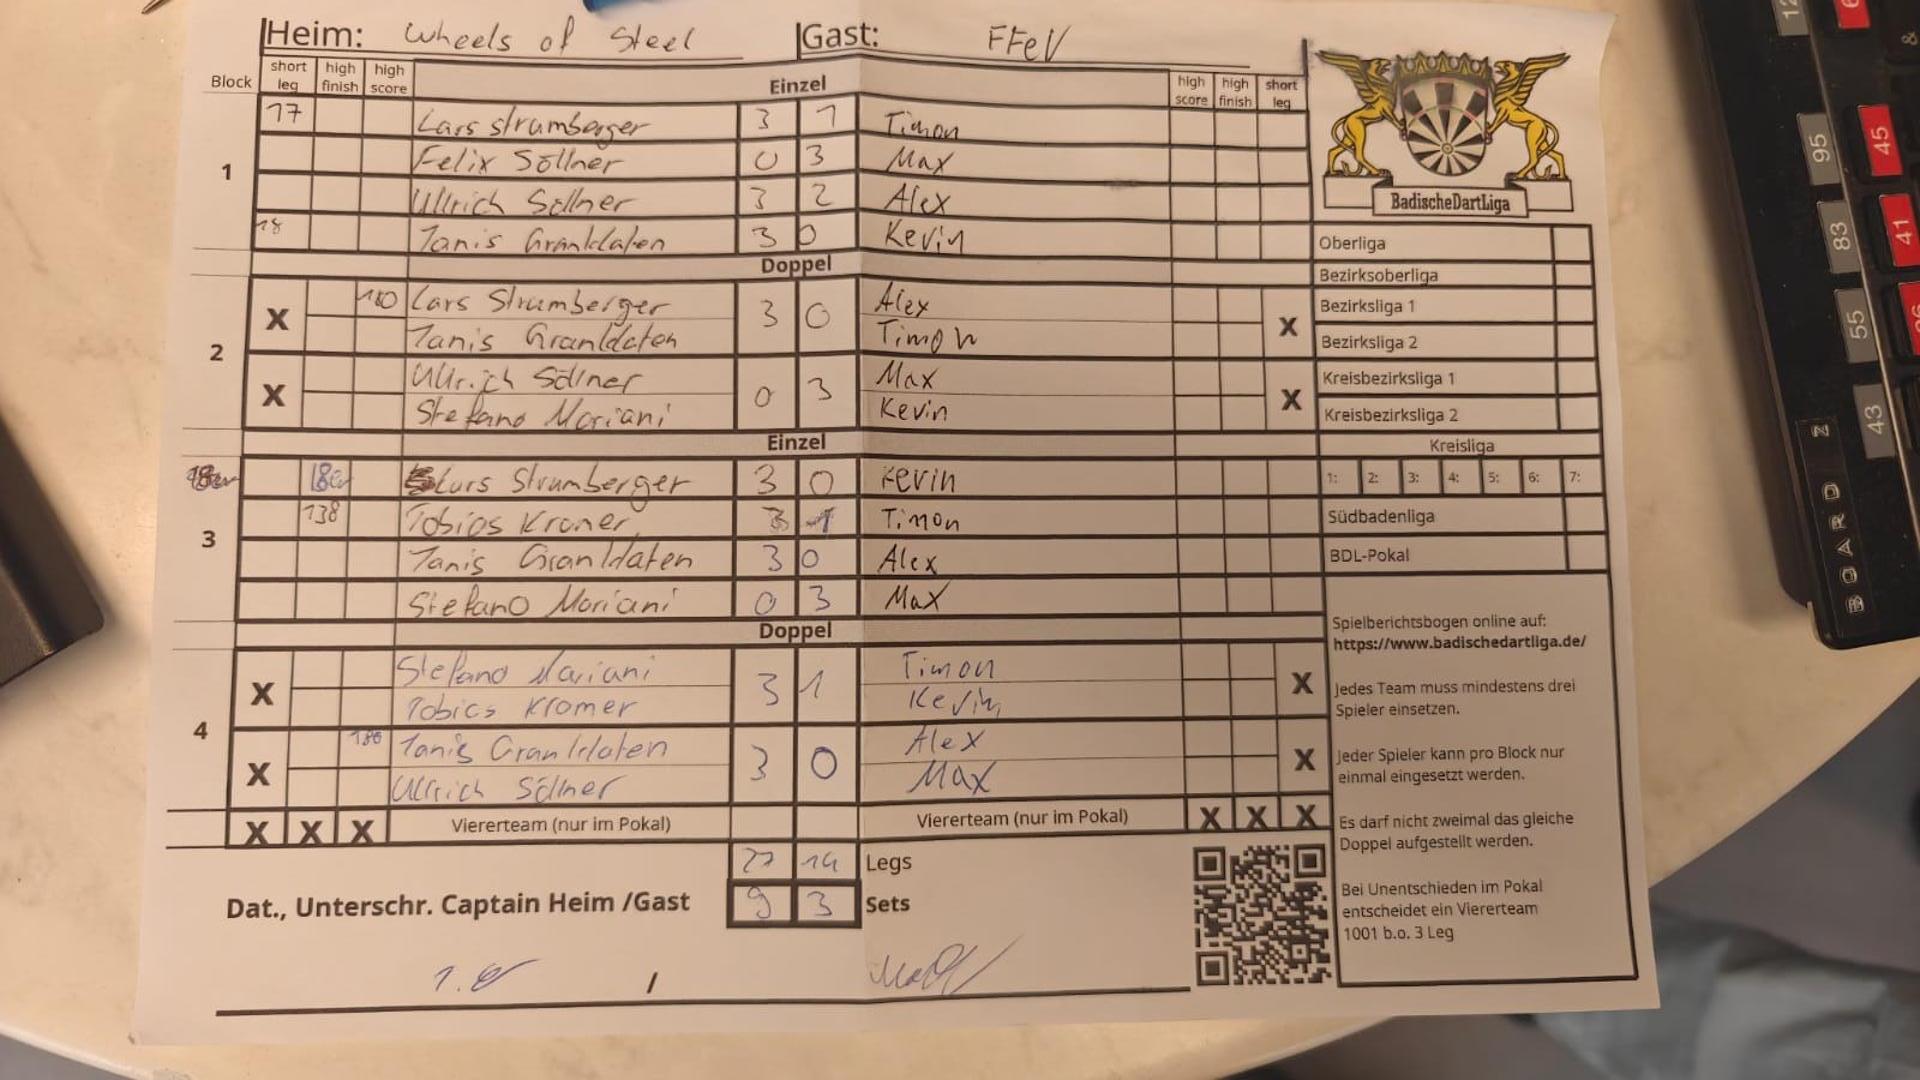 Heim: Wheels of Steel Gast: FFeV
Block short leg high finish high score Einzel high score high finish short leg
1
17 Lars Strumberger 3 1 Timon
Felix Söllner 0 3 Max
Ullrich Söllner 3 2 Alex
18 Janis Granldaten 3 0 Kevin
Doppel
2
X 180 Lars Strumberger 3 0 Alex X
Janis Granldaten Timon
X Ullrich Söllner 0 3 Max X
Stefano Mariani Kevin
Einzel
3
18er Lars Strumberger 3 0 Kevin
138 Tobias Kromer 3 1 Timon
Janis Granldaten 3 0 Alex
Stefano Mariani 0 3 Max
Doppel
4
X Stefano Mariani 3 1 Timon X
Tobias Kromer Kevin
X 180 Janis Granldaten 3 0 Alex X
Ullrich Söllner Max
X X X Viererteam (nur im Pokal) Viererteam (nur im Pokal) X X X
27 14 Legs
Dat., Unterschr. Captain Heim /Gast 9 3 Sets
/
BadischeDartLiga
Oberliga
Bezirksoberliga
Bezirksliga 1
Bezirksliga 2
Kreisbezirksliga 1
Kreisbezirksliga 2
Kreisliga
1: 2: 3: 4: 5: 6: 7:
Südbadenliga
BDL-Pokal
Spielberichtsbogen online auf:
https://www.badischedartliga.de/
Jedes Team muss mindestens drei
Spieler einsetzen.
Jeder Spieler kann pro Block nur
einmal eingesetzt werden.
Es darf nicht zweimal das gleiche
Doppel aufgestellt werden.
Bei Unentschieden im Pokal
entscheidet ein Viererteam
1001 b.o. 3 Leg
95
45
83
41
55
43
BOARD 2